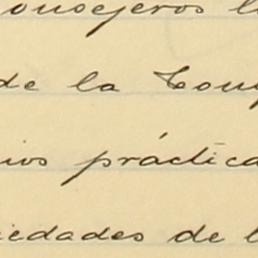 onsejeros l
de la Comp
ios práctica
iedades de l